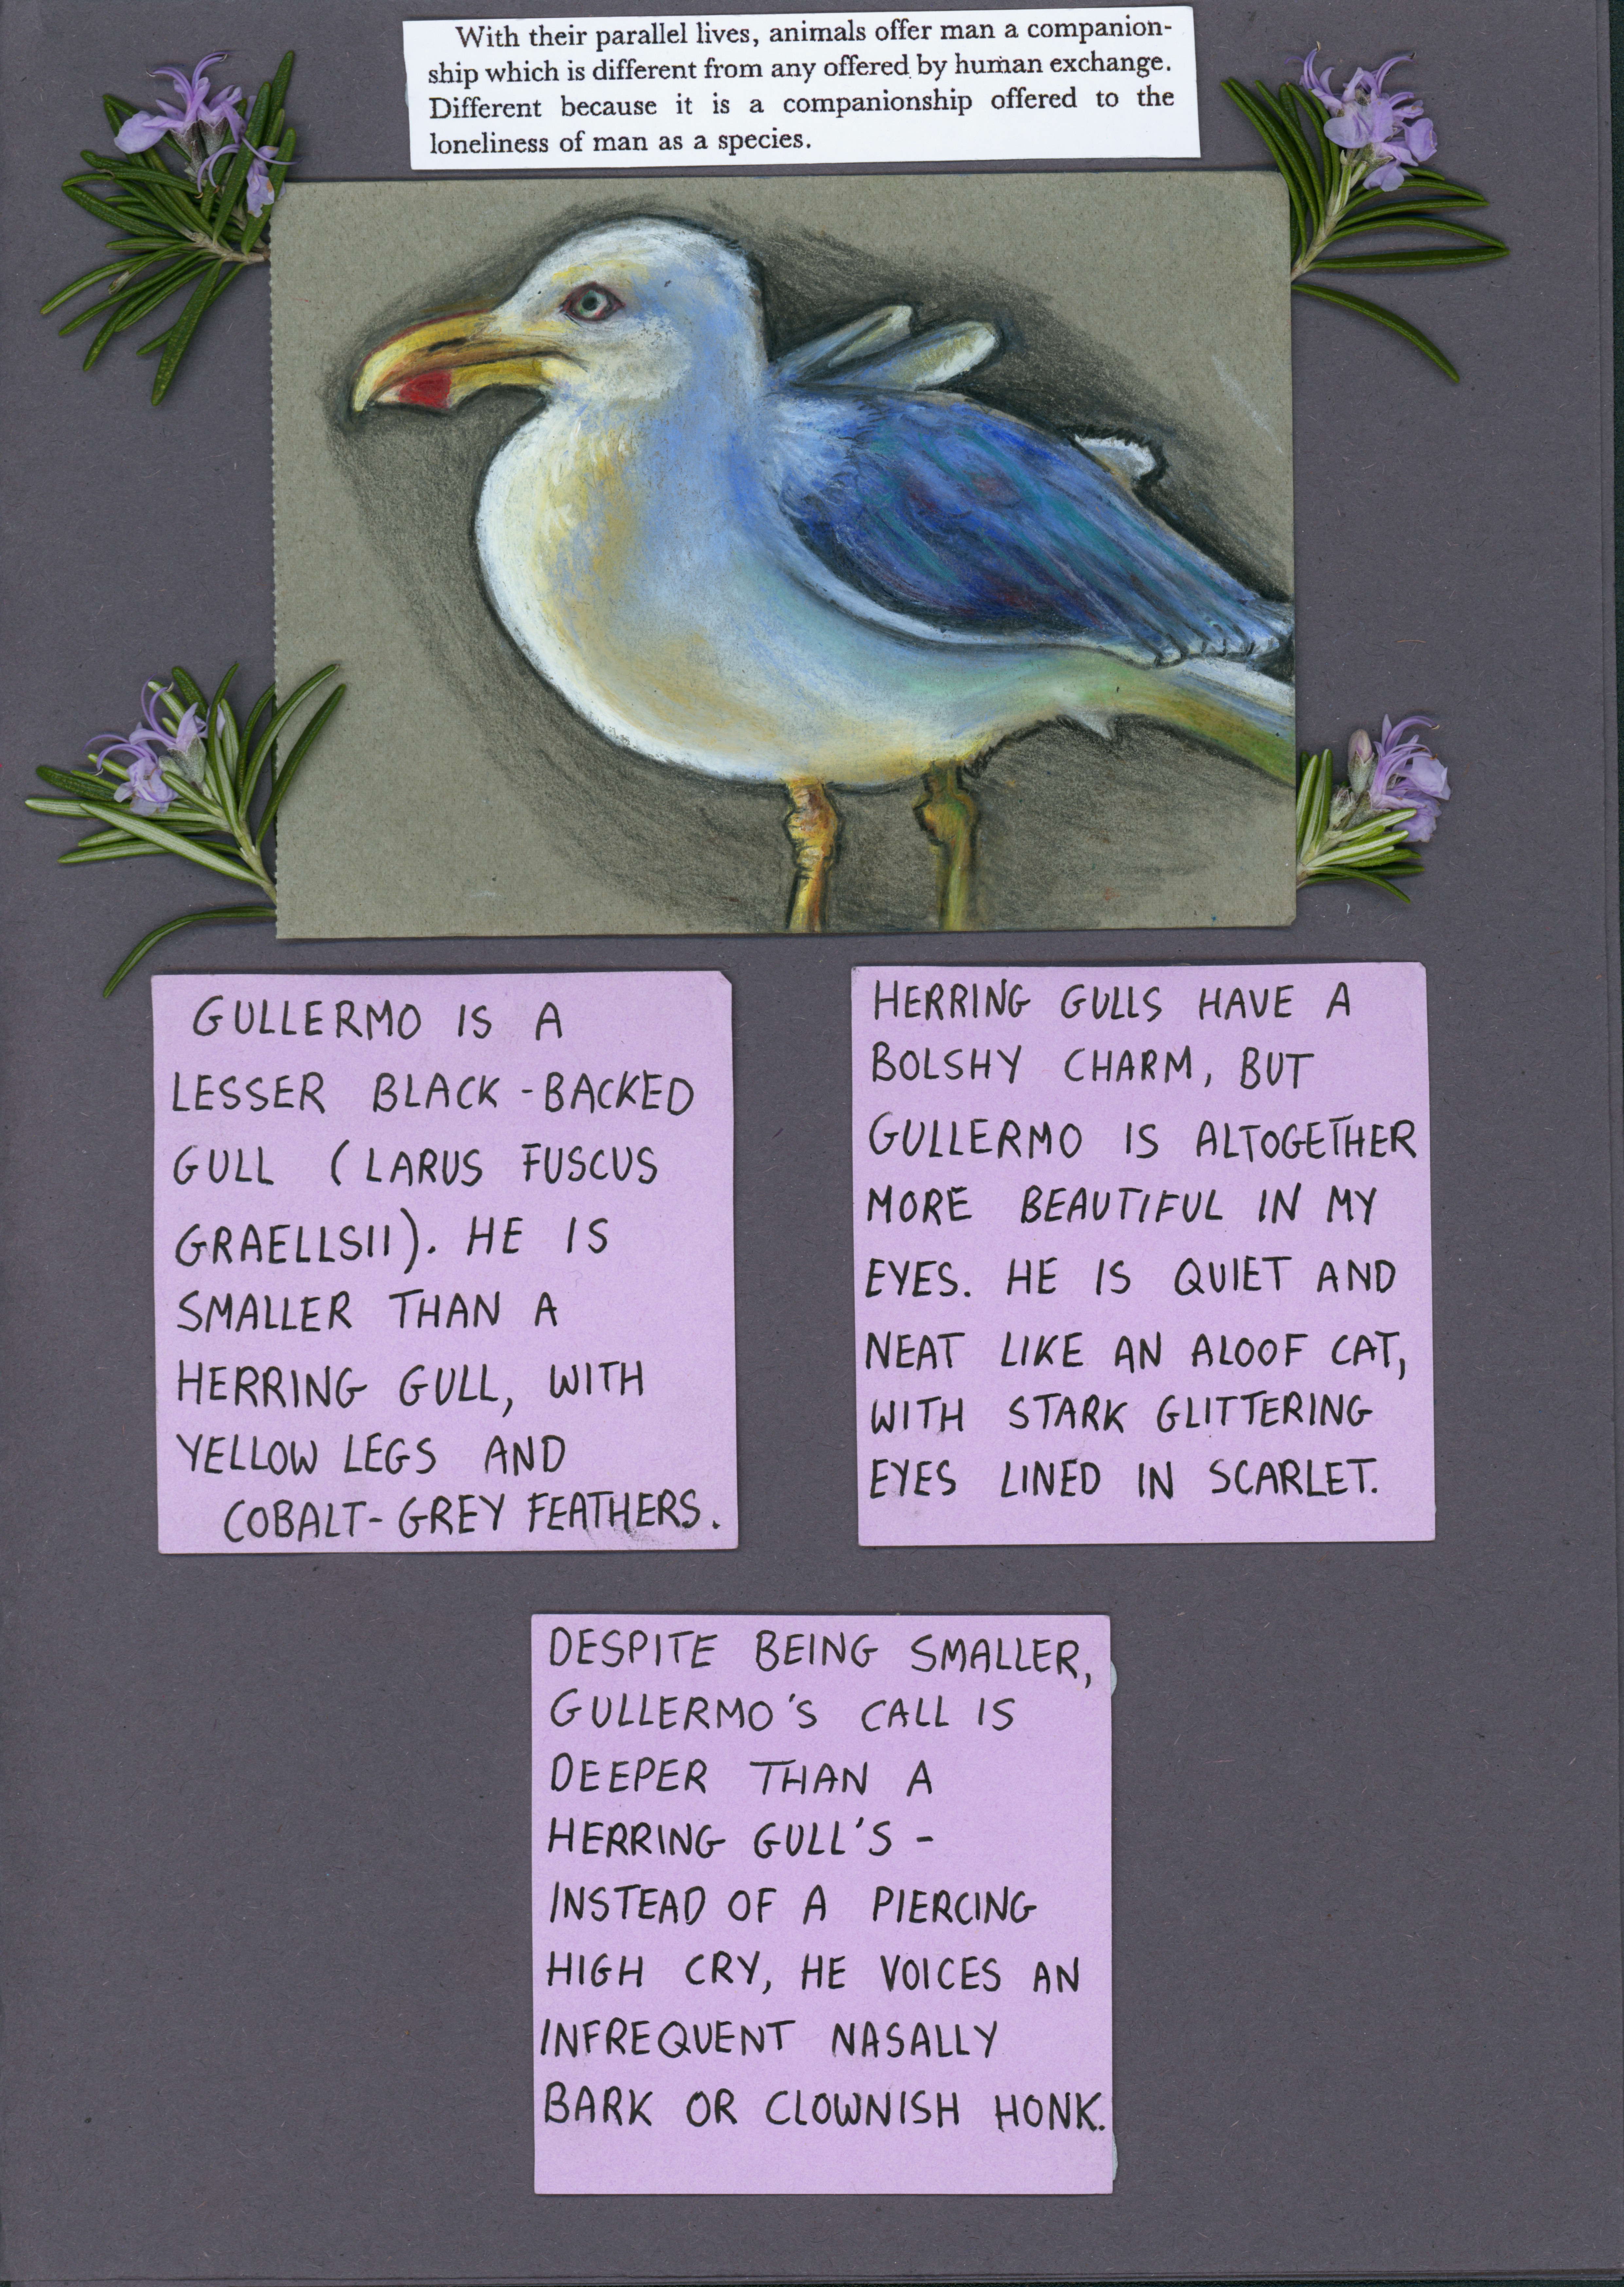 With their parallel lives, animals offer man a companion-
ship which is different from any offered by human exchange.
Different because it is a companionship offered to the
loneliness of man as a species.
GULLERMO IS A
LESSER BLACK-BACKED
GULL (LARUS FUSCUS
GRAELLSII). HE IS
SMALLER THAN A
HERRING GULL, WITH
YELLOW LEGS AND
COBALT-GREY FEATHERS.
HERRING GULLS HAVE A
BOLSHY CHARM, BUT
GULLERMO IS ALTOGETHER
MORE BEAUTIFUL IN MY
EYES. HE IS QUIET AND
NEAT LIKE AN ALOOF CAT,
WITH STARK GLITTERING
EYES LINED IN SCARLET.
DESPITE BEING SMALLER,
GULLERMO'S CALL IS
DEEPER THAN A
HERRING GULL'S -
INSTEAD OF A PIERCING
HIGH CRY, HE VOICES AN
INFREQUENT NASALLY
BARK OR CLOWNISH HONK.